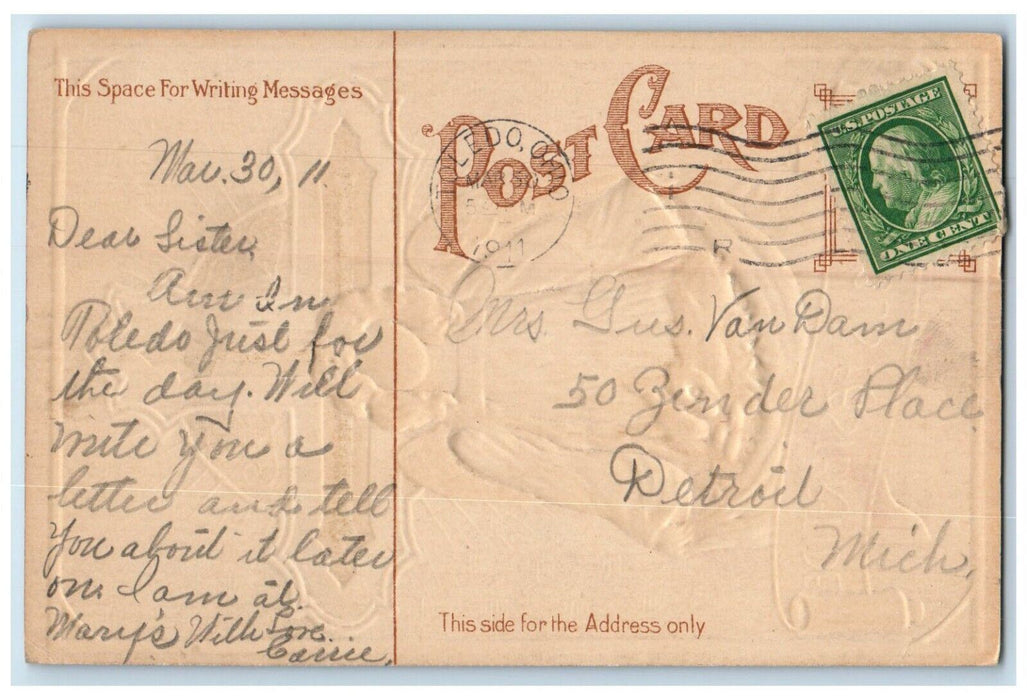 This Space For Writing Messages
POST CARD
U.S. POSTAGE
ONE CENT
LEDO, OHIO
1911
R
Mar. 30, 11
Dear Sister
Am In
Toledo Just for
the day. Will
write You a
letter and tell
You about it later
on. I am at
Mary's With Love.
Carrie.
Mrs. Gus. Van Dam
50 Zender Place
Detroit
Mich.
This side for the Address only